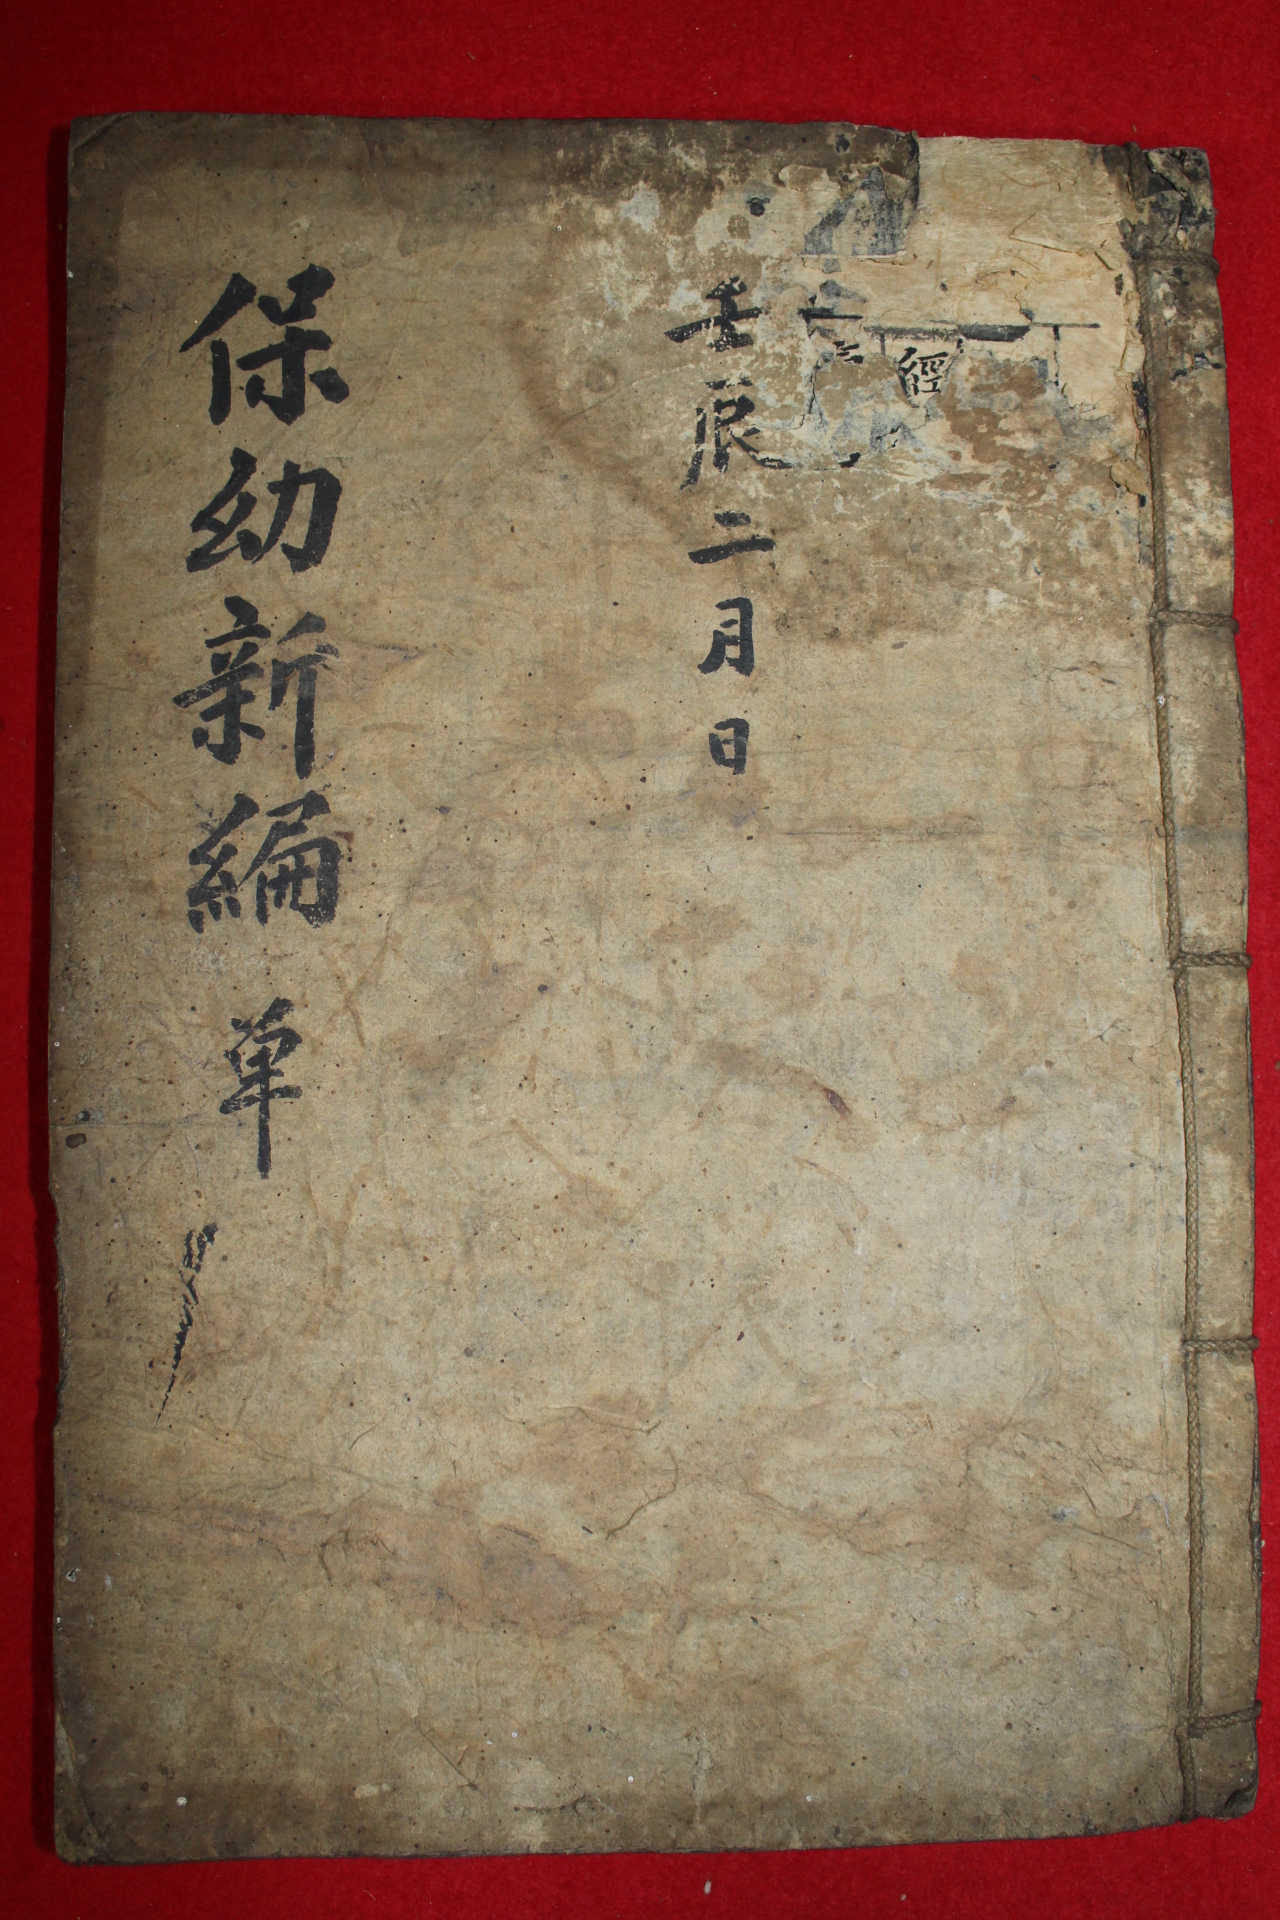 經
壬辰二月日
保幼新編 单